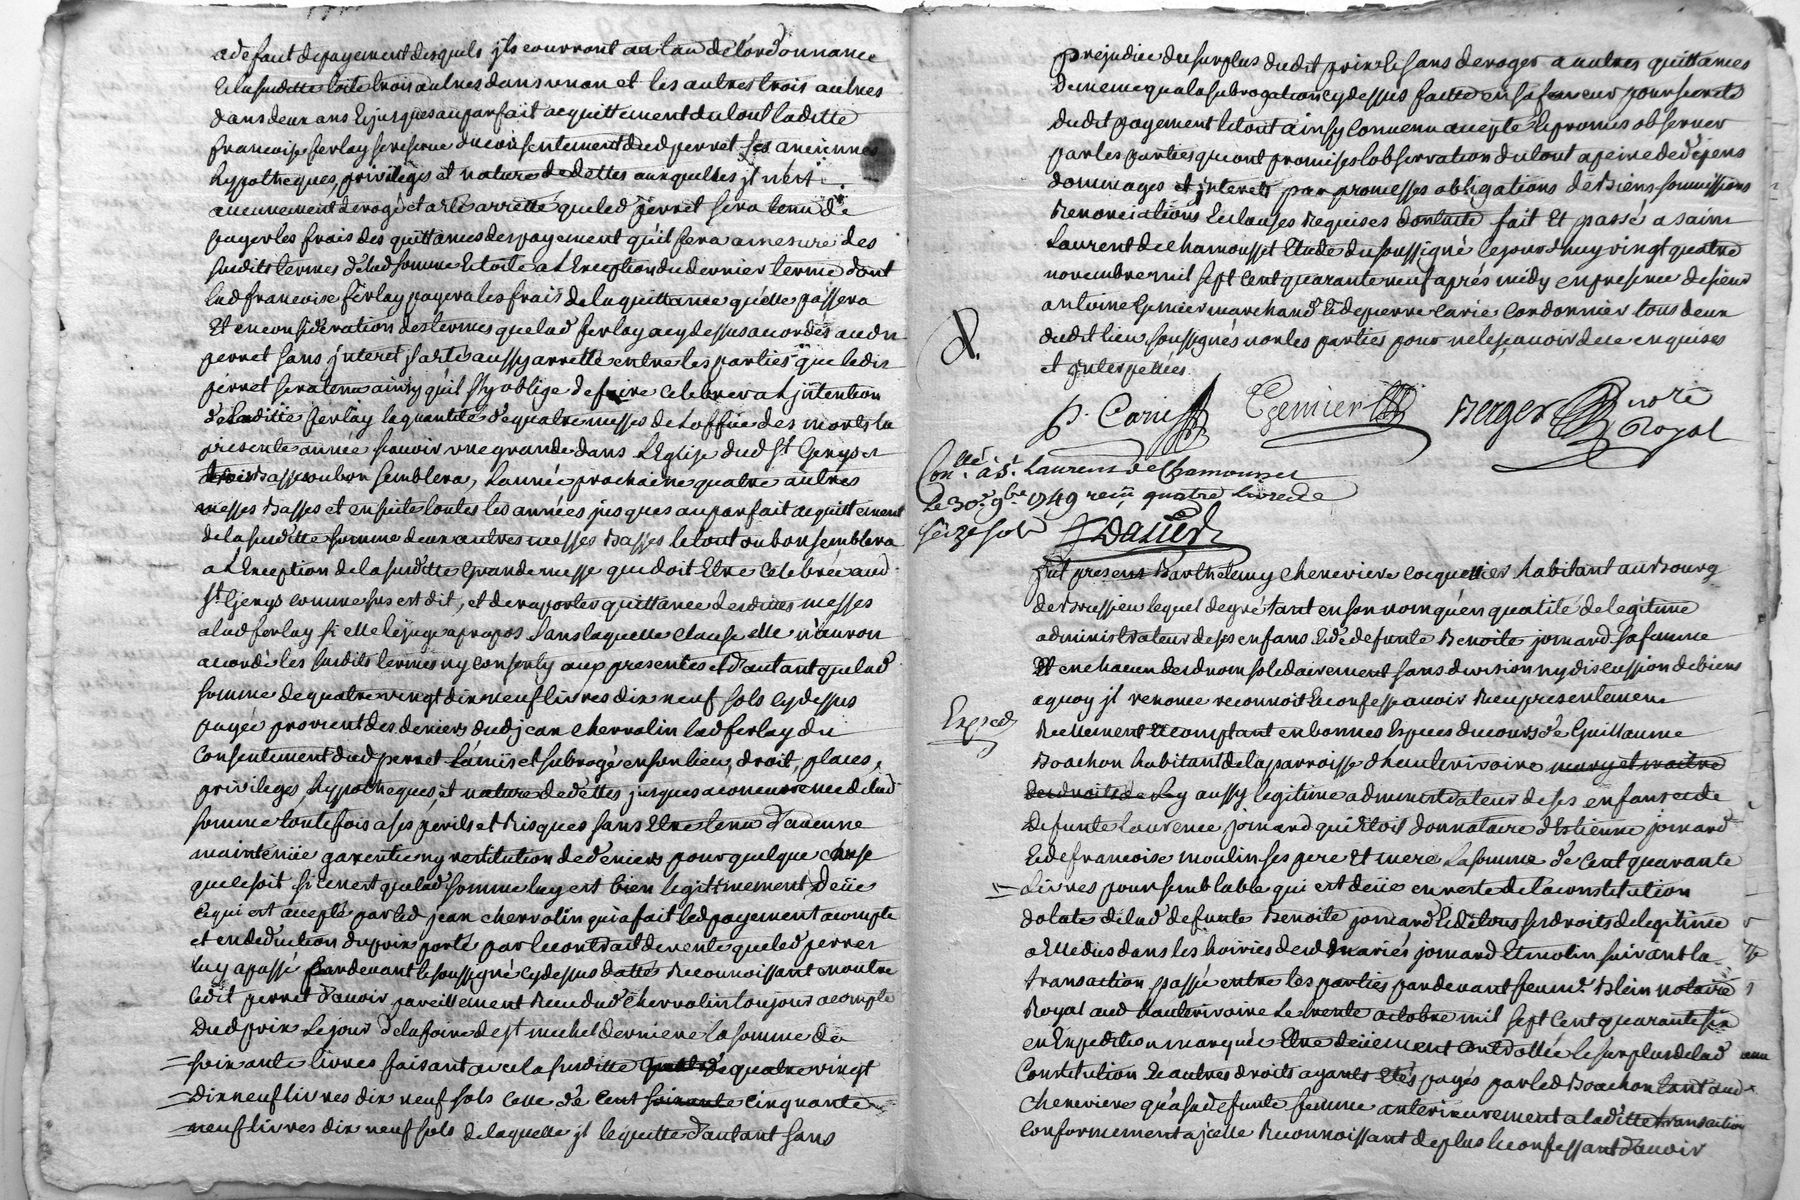 a defaut de payement desquels jls courront au taux de l'ordonnance
Et la susditte toile trois aulnes dans un an et les autres trois aulnes
dans deux ans Et jusques au parfait acquittement du tout laditte
francoise ferlay se reserve du consentement dud perret ses anciennes
hypotheques, privileges et nature de dettes auxquelles jl n'est
aucunement derogé et a été arretté que led perret sera tenu de
payer les frais des quittances des payement qu'il fera a mesure des
susdits termes de lad somme Et toile a L'Exception du dernier terme dont
lad francoise ferlay payera les frais de la quittance qu'elle passera
Et en considération des termes que lad ferlay a cy dessus accordés aud
perret sans jnteret jl a été aussy arretté entre les parties que ledit
perret sera tenu ainsy qu'il s'y oblige de faire celebrer a L'jntention
de laditte ferlay la quantité de quatre messes de L'office des morts la
presente année sçavoir une grande dans L'Eglise dud St Genys et
trois Basses ou bon semblera, L'année prochaine quatre autres
messes Basses et ensuite toutes les années jusques au parfait acquittement
de la susditte somme deux autres messes Basses le tout ou bon semblera
a L'Exception de la susditte Grande messe qui doit Etre celebrée aud
St Genys comme sus est dit, et de raporter quittance desdittes messes
a lad ferlay si elle le juge a propos sans laquelle clause elle n'auroit
accordé les susdits termes ny consenty aux presentes et d'autant que lad
somme de quatre vingt dix neuf livres dix neuf sols cy dessus
payée provient des deniers dud jean chervolin lad ferlay du
consentement dud perret L'a mis et subrogé en son lieu, droit, place,
privileges, hypotheques et nature de dettes jusques a concurrence de lad
somme toutefois a ses perils et Risques sans Etre tenu d'aucune
maintenüe garentie ny restitution de deniers pour quelque chose
que ce soit si ce n'est que lad somme luy est bien legitimement deüe
ce qui est accepté par led jean chervolin qui a fait led payement a compte
et en deduction du prix porté par le contrat de vente que led perret
luy a passé pardevant le soussigné cy dessus datté Reconnoissant en outre
ledit perret d'avoir pareillement Reçu dud chervolin toujours a compte
dud prix Le jour de la foire de st michel derniere la somme de
soixante livres faisant avec la susditte de quatre vingt
dix neuf livres dix neuf sols celle de cent soixante cinquante
neuf livres dix neuf sols de laquelle jl le quitte d'autant sans
prejudice du surplus dudit prix Et sans deroger a autres quittances
De meme qu'a la subrogation cy dessus faitte en sa faveur pour sureté
dudit payement Le tout ainsy convenu accepté Et promis observer
par les parties qui ont promises l'observation du tout a peine de depens
dommages et jnterets par promesses obligations de Biens soumissions
Renonciations Et clauses Requises dont acte fait Et passé a saint
Laurent de chamousset Etude du soussigné le jourd'huy vingt quatre
novembre mil sept cent quarante neuf aprés midy en presence de sieur
antoine Gemier marchand Et de pierre Carie Cordonnier tous deux
dudit lieu soussignés non les parties pour ne le sçavoir de ce enquises
et jnterpellées
p. Carie Gemier Berger nore
Royal
Con.llé à St. Laurens de Chamousset
Le 30e 9bre 1749 reçu quatre livres de
seize sols Dasier
fut present Barthelemy cheneviere coquettier habitant au Bourg
de Brussieu lequel de gré tant en son nom qu'en qualité de legitime
administrateur de ses enfans Et de defunte Benoite jomard sa femme
Et en chacun desd noms solidairement sans division ny discussion de biens
a quoy jl renonce reconnoit Et confesse avoir Reçu presentement
Exped
Reellement Et comptant en bonnes Especes du cours de Guillaume
Boachon habitant de la parroisse d'hauterivoire mary et maitre
des droits de luy aussy legitime administrateur de ses enfans et de
defunte Laurence jomard qui Etoit donnataire d'Estienne jomard
Et de francoise moulin ses pere Et mere La somme de cent quarante
Livres pour semblable qui est deüe en reste de la constitution
dotale de lad defunte Benoite jomard Et de tous ses droits de legitime
a Elle dus dans les hoiries desd mariés jomard Et molin suivant la
transaction passé entre les parties pardevant feu me Blein notaire
Royal aud hauterivoire Le trente octobre mil sept cent quarante six
en Expedition marquée Etre deüement controllée le surplus de lad
Constitution Et autres droits ayants Etés payés par led Boachon tant aud
cheneviere qu'a sa defunte femme anterieurement a laditte transaction
conformement a jcelle Reconnoissant de plus Et confessant d'avoir